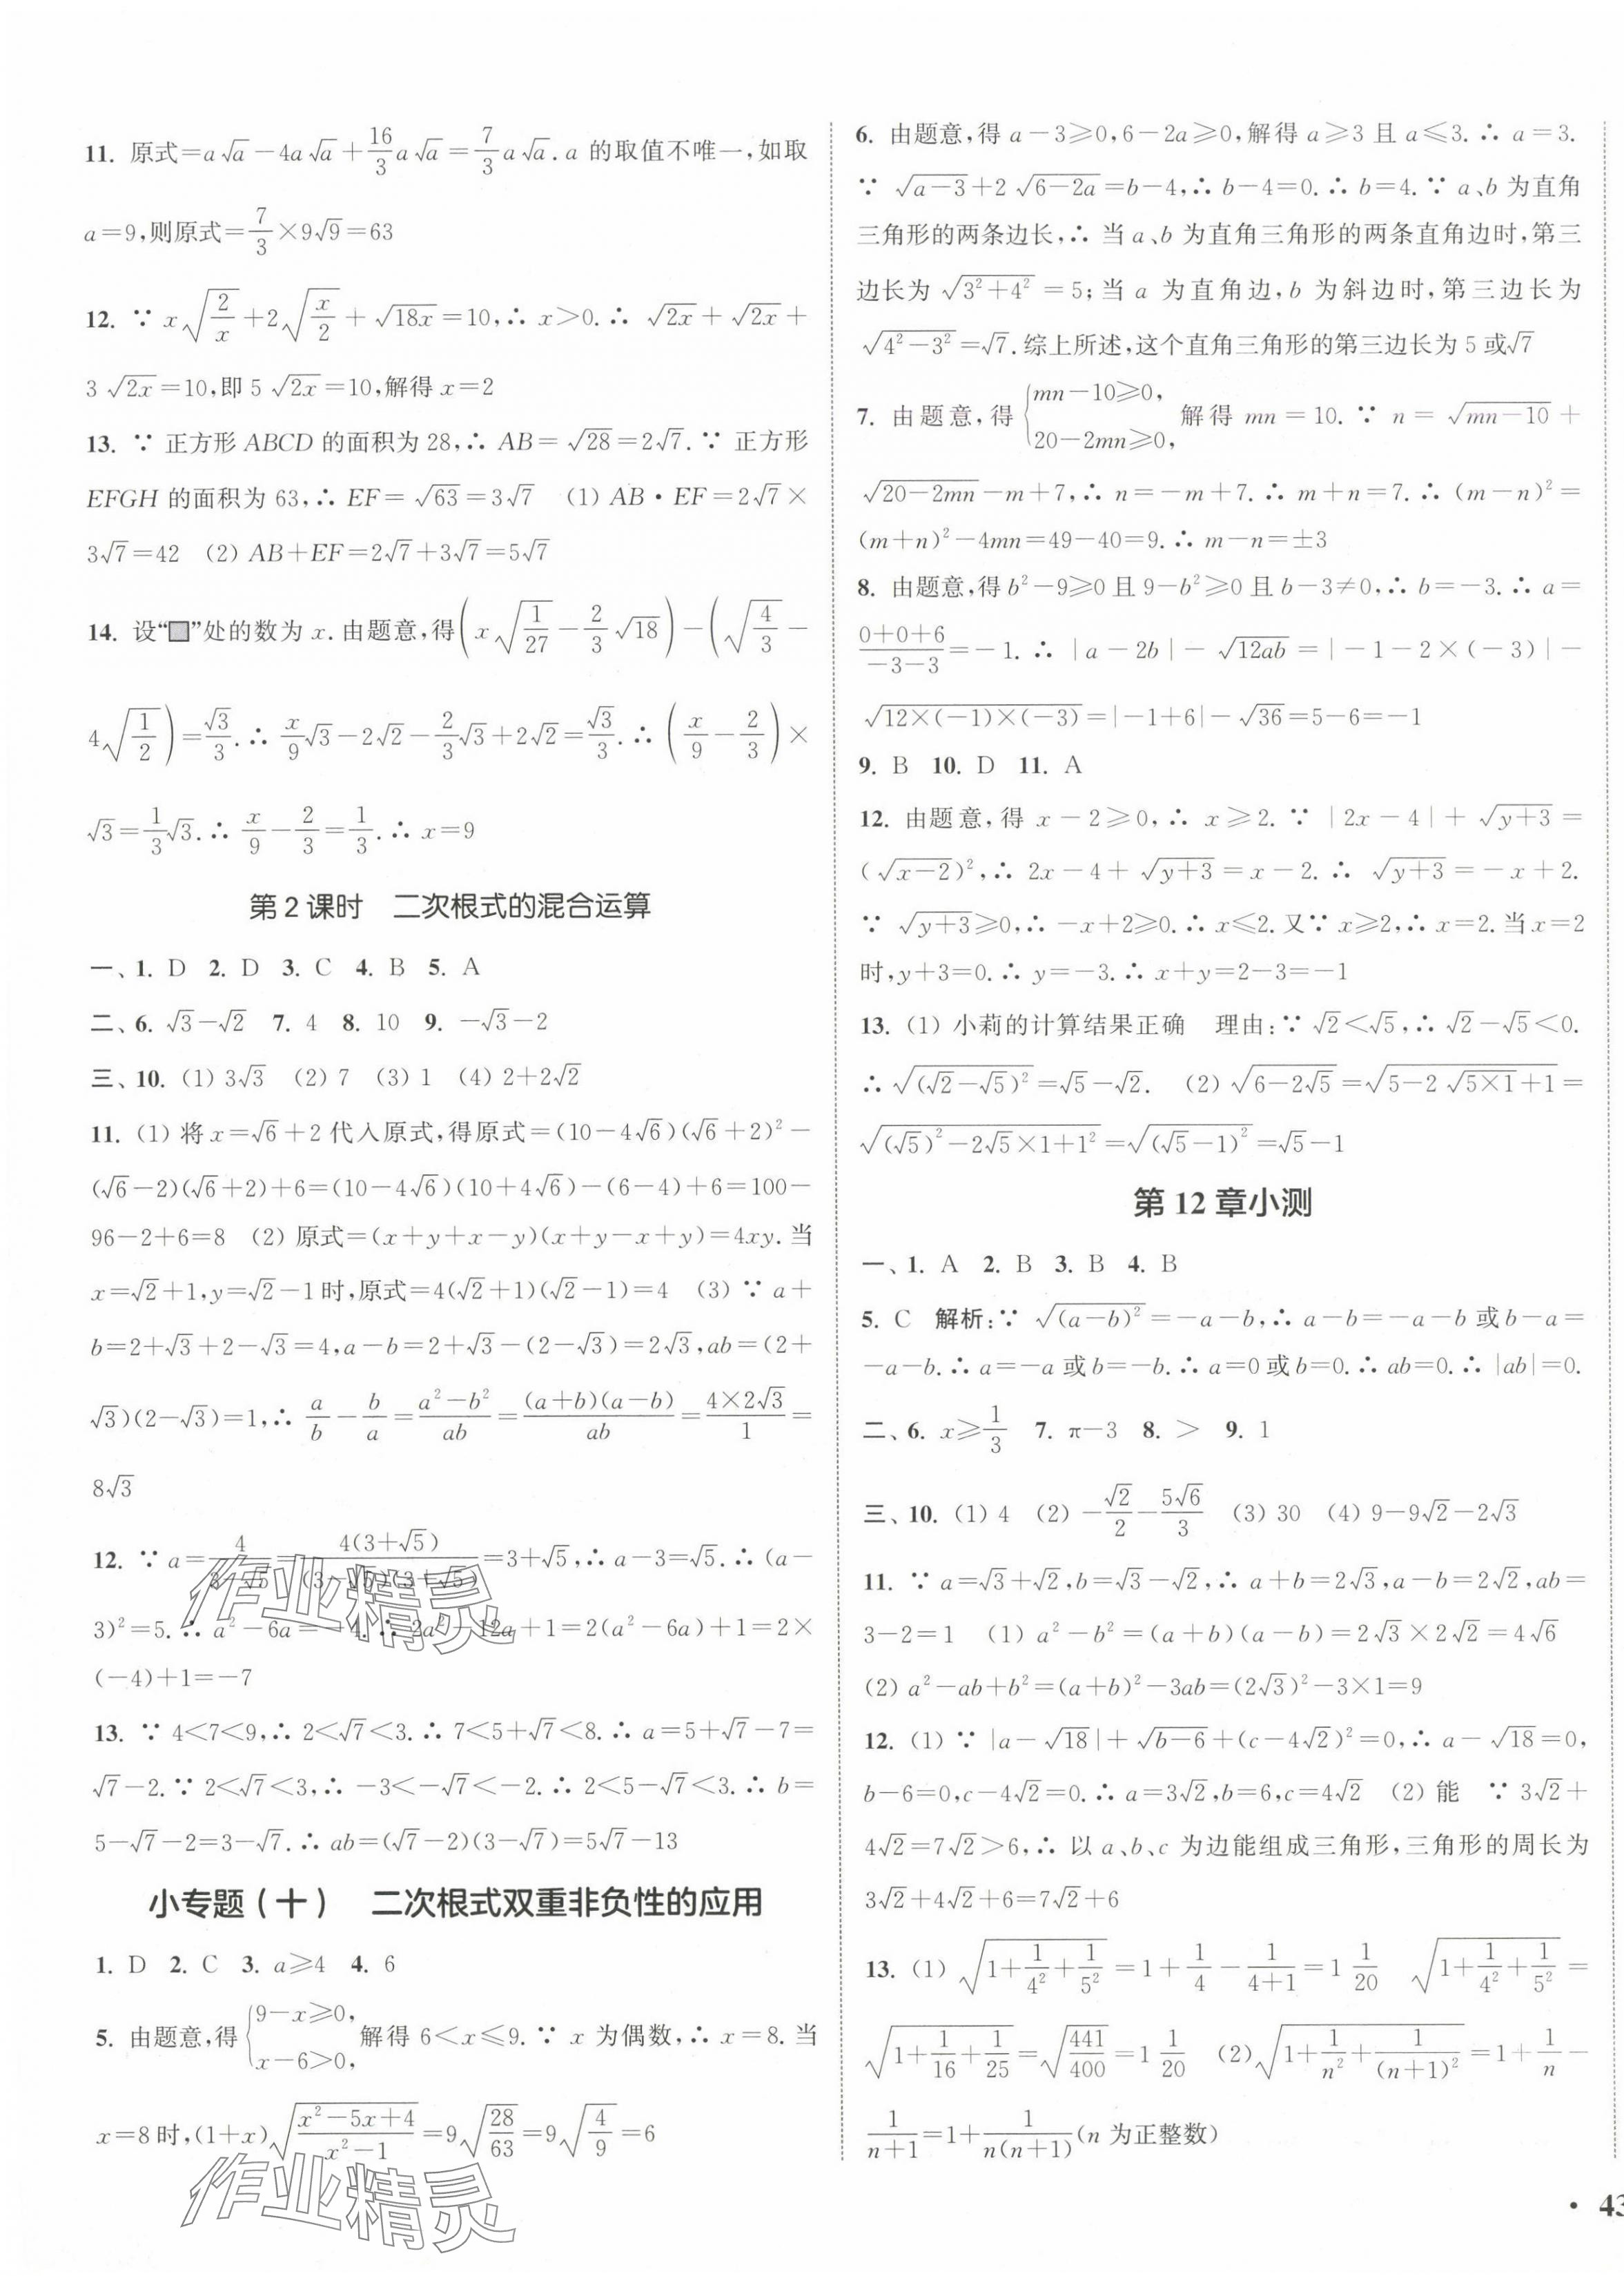 11. 原式=a√a−4a√a+16/3 a√a=7/3 a√a. a 的取值不唯一,如取
a=9,则原式=7/3×9√9=63
12. ∵ x√(2/x)+2√(x/2)+√(18x)=10,∴ x>0. ∴ √(2x)+√(2x)+
3√(2x)=10,即 5√(2x)=10,解得 x=2
13. ∵ 正方形 ABCD 的面积为 28,∴ AB=√28=2√7. ∵ 正方形
EFGH 的面积为 63,∴ EF=√63=3√7 (1) AB·EF=2√7×
3√7=42 (2) AB+EF=2√7+3√7=5√7
14. 设“■”处的数为 x. 由题意,得(x√(1/27)−2/3√18)−(√(4/3)−
4√(1/2))=√3/3. ∴ x/9√3−2√2−2/3√3+2√2=√3/3. ∴ (x/9−2/3)×
√3=1/3√3. ∴ x/9−2/3=1/3. ∴ x=9
第 2 课时 二次根式的混合运算
一、1. D 2. D 3. C 4. B 5. A
二、6. √3−√2 7. 4 8. 10 9. −√3−2
三、10. (1) 3√3 (2) 7 (3) 1 (4) 2+2√2
11. (1) 将 x=√6+2 代入原式,得原式=(10−4√6)(√6+2)²−
(√6−2)(√6+2)+6=(10−4√6)(10+4√6)−(6−4)+6=100−
96−2+6=8 (2) 原式=(x+y+x−y)(x+y−x+y)=4xy. 当
x=√2+1,y=√2−1 时,原式=4(√2+1)(√2−1)=4 (3) ∵ a+
b=2+√3+2−√3=4,a−b=2+√3−(2−√3)=2√3,ab=(2+
√3)(2−√3)=1,∴ a/b−b/a=(a²−b²)/ab=(a+b)(a−b)/ab=(4×2√3)/1=
8√3
12. ∵ a=4/(3−√5)=4(3+√5)/((3−√5)(3+√5))=3+√5,∴ a−3=√5. ∴ (a−
3)²=5. ∴ a²−6a=−4. ∴ 2a²−12a+1=2(a²−6a)+1=2×
(−4)+1=−7
13. ∵ 4<7<9,∴ 2<√7<3. ∴ 7<5+√7<8. ∴ a=5+√7−7=
√7−2. ∵ 2<√7<3,∴ −3<−√7<−2. ∴ 2<5−√7<3. ∴ b=
5−√7−2=3−√7. ∴ ab=(√7−2)(3−√7)=5√7−13
小专题(十) 二次根式双重非负性的应用
1. D 2. C 3. a⩾4 4. 6
5. 由题意,得{9−x⩾0, x−6>0, 解得 6<x⩽9. ∵ x 为偶数,∴ x=8. 当
x=8 时,(1+x)√((x²−5x+4)/(x²−1))=9√(28/63)=9√(4/9)=6
作业精灵
作业精灵
6. 由题意,得 a−3⩾0,6−2a⩾0,解得 a⩾3 且 a⩽3. ∴ a=3.
∵ √(a−3)+2√(6−2a)=b−4,∴ b−4=0. ∴ b=4. ∵ a、b 为直角
三角形的两条边长,∴ 当 a、b 为直角三角形的两条直角边时,第三
边长为√(3²+4²)=5;当 a 为直角边,b 为斜边时,第三边长为
√(4²−3²)=√7. 综上所述,这个直角三角形的第三边长为 5 或√7
7. 由题意,得{mn−10⩾0, 20−2mn⩾0, 解得 mn=10. ∵ n=√(mn−10)+
√(20−2mn)−m+7,∴ n=−m+7. ∴ m+n=7. ∴ (m−n)²=
(m+n)²−4mn=49−40=9. ∴ m−n=±3
8. 由题意,得 b²−9⩾0 且 9−b²⩾0 且 b−3≠0,∴ b=−3. ∴ a=
(0+0+6)/(−3−3)=−1. ∴ |a−2b|−√(12ab)=|−1−2×(−3)|−
√(12×(−1)×(−3))=|−1+6|−√36=5−6=−1
9. B 10. D 11. A
12. 由题意,得 x−2⩾0,∴ x⩾2. ∵ |2x−4|+√(y+3)=
(√(x−2))²,∴ 2x−4+√(y+3)=x−2. ∴ √(y+3)=−x+2.
∵ √(y+3)⩾0,∴ −x+2⩾0. ∴ x⩽2. 又∵ x⩾2,∴ x=2. 当 x=2
时,y+3=0. ∴ y=−3. ∴ x+y=2−3=−1
13. (1) 小莉的计算结果正确 理由:∵ √2<√5,∴ √2−√5<0.
∴ √((√2−√5)²)=√5−√2. (2) √(6−2√5)=√(5−2√(5×1)+1)=
√((√5)²−2√5×1+1²)=√((√5−1)²)=√5−1
第 12 章小测
一、1. A 2. B 3. B 4. B
5. C 解析:∵ √((a−b)²)=−a−b,∴ a−b=−a−b 或 b−a=
−a−b. ∴ a=−a 或 b=−b. ∴ a=0 或 b=0. ∴ ab=0. ∴ |ab|=0.
二、6. x⩾1/3 7. π−3 8. > 9. 1
三、10. (1) 4 (2) −√2/2−5√6/3 (3) 30 (4) 9−9√2−2√3
11. ∵ a=√3+√2,b=√3−√2,∴ a+b=2√3,a−b=2√2,ab=
3−2=1 (1) a²−b²=(a+b)(a−b)=2√3×2√2=4√6
(2) a²−ab+b²=(a+b)²−3ab=(2√3)²−3×1=9
12. (1) ∵ |a−√18|+√(b−6)+(c−4√2)²=0,∴ a−√18=0,
b−6=0,c−4√2=0. ∴ a=3√2,b=6,c=4√2 (2) 能 ∵ 3√2+
4√2=7√2>6,∴ 以 a、b、c 为边能组成三角形,三角形的周长为
3√2+4√2+6=7√2+6
13. (1) √(1+1/4²+1/5²)=1+1/4−1/(4+1)=1 1/20 √(1+1/4²+1/5²)=
√(1+1/16+1/25)=√(441/400)=1 1/20 (2) √(1+1/n²+1/(n+1)²)=1+1/n−
1/(n+1)=1+1/(n(n+1))(n 为正整数)
· 43